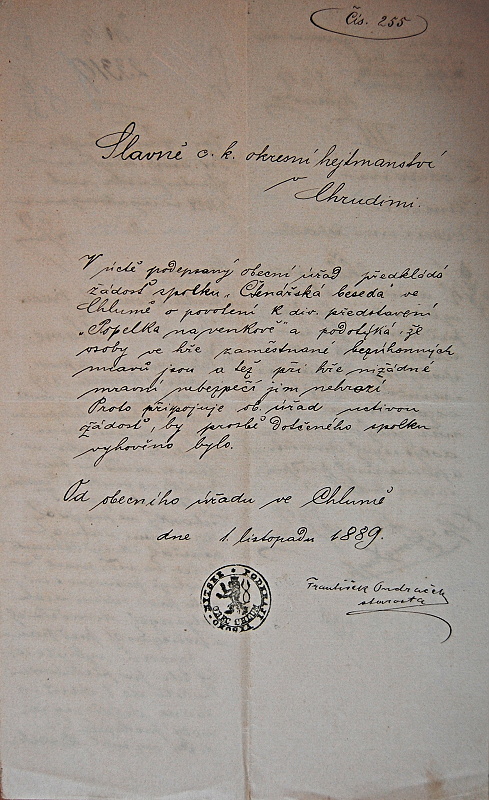 Čís. 255
Slavné c. k. okresní hejtmanství
v
Chrudimi.
V úctě podepsaný obecní úřad předkládá
žádosť spolku „Čtenářská beseda" ve
Chlumě o povolení k div. představení
„Popelka na venkově" a podotýká, že
osoby ve hře zaměstnané bezúhonných
mravů jsou a též při hře nižádné
mravní nebezpečí jim nehrozí
Proto připojuje ob. úřad uctivou
žádosť, by prosbě dotčeného spolku
vyhověno bylo.
Od obecního úřadu ve Chlumě
dne 1. listopadu 1889.
František Ondráček
starosta
OBEC CHLUM